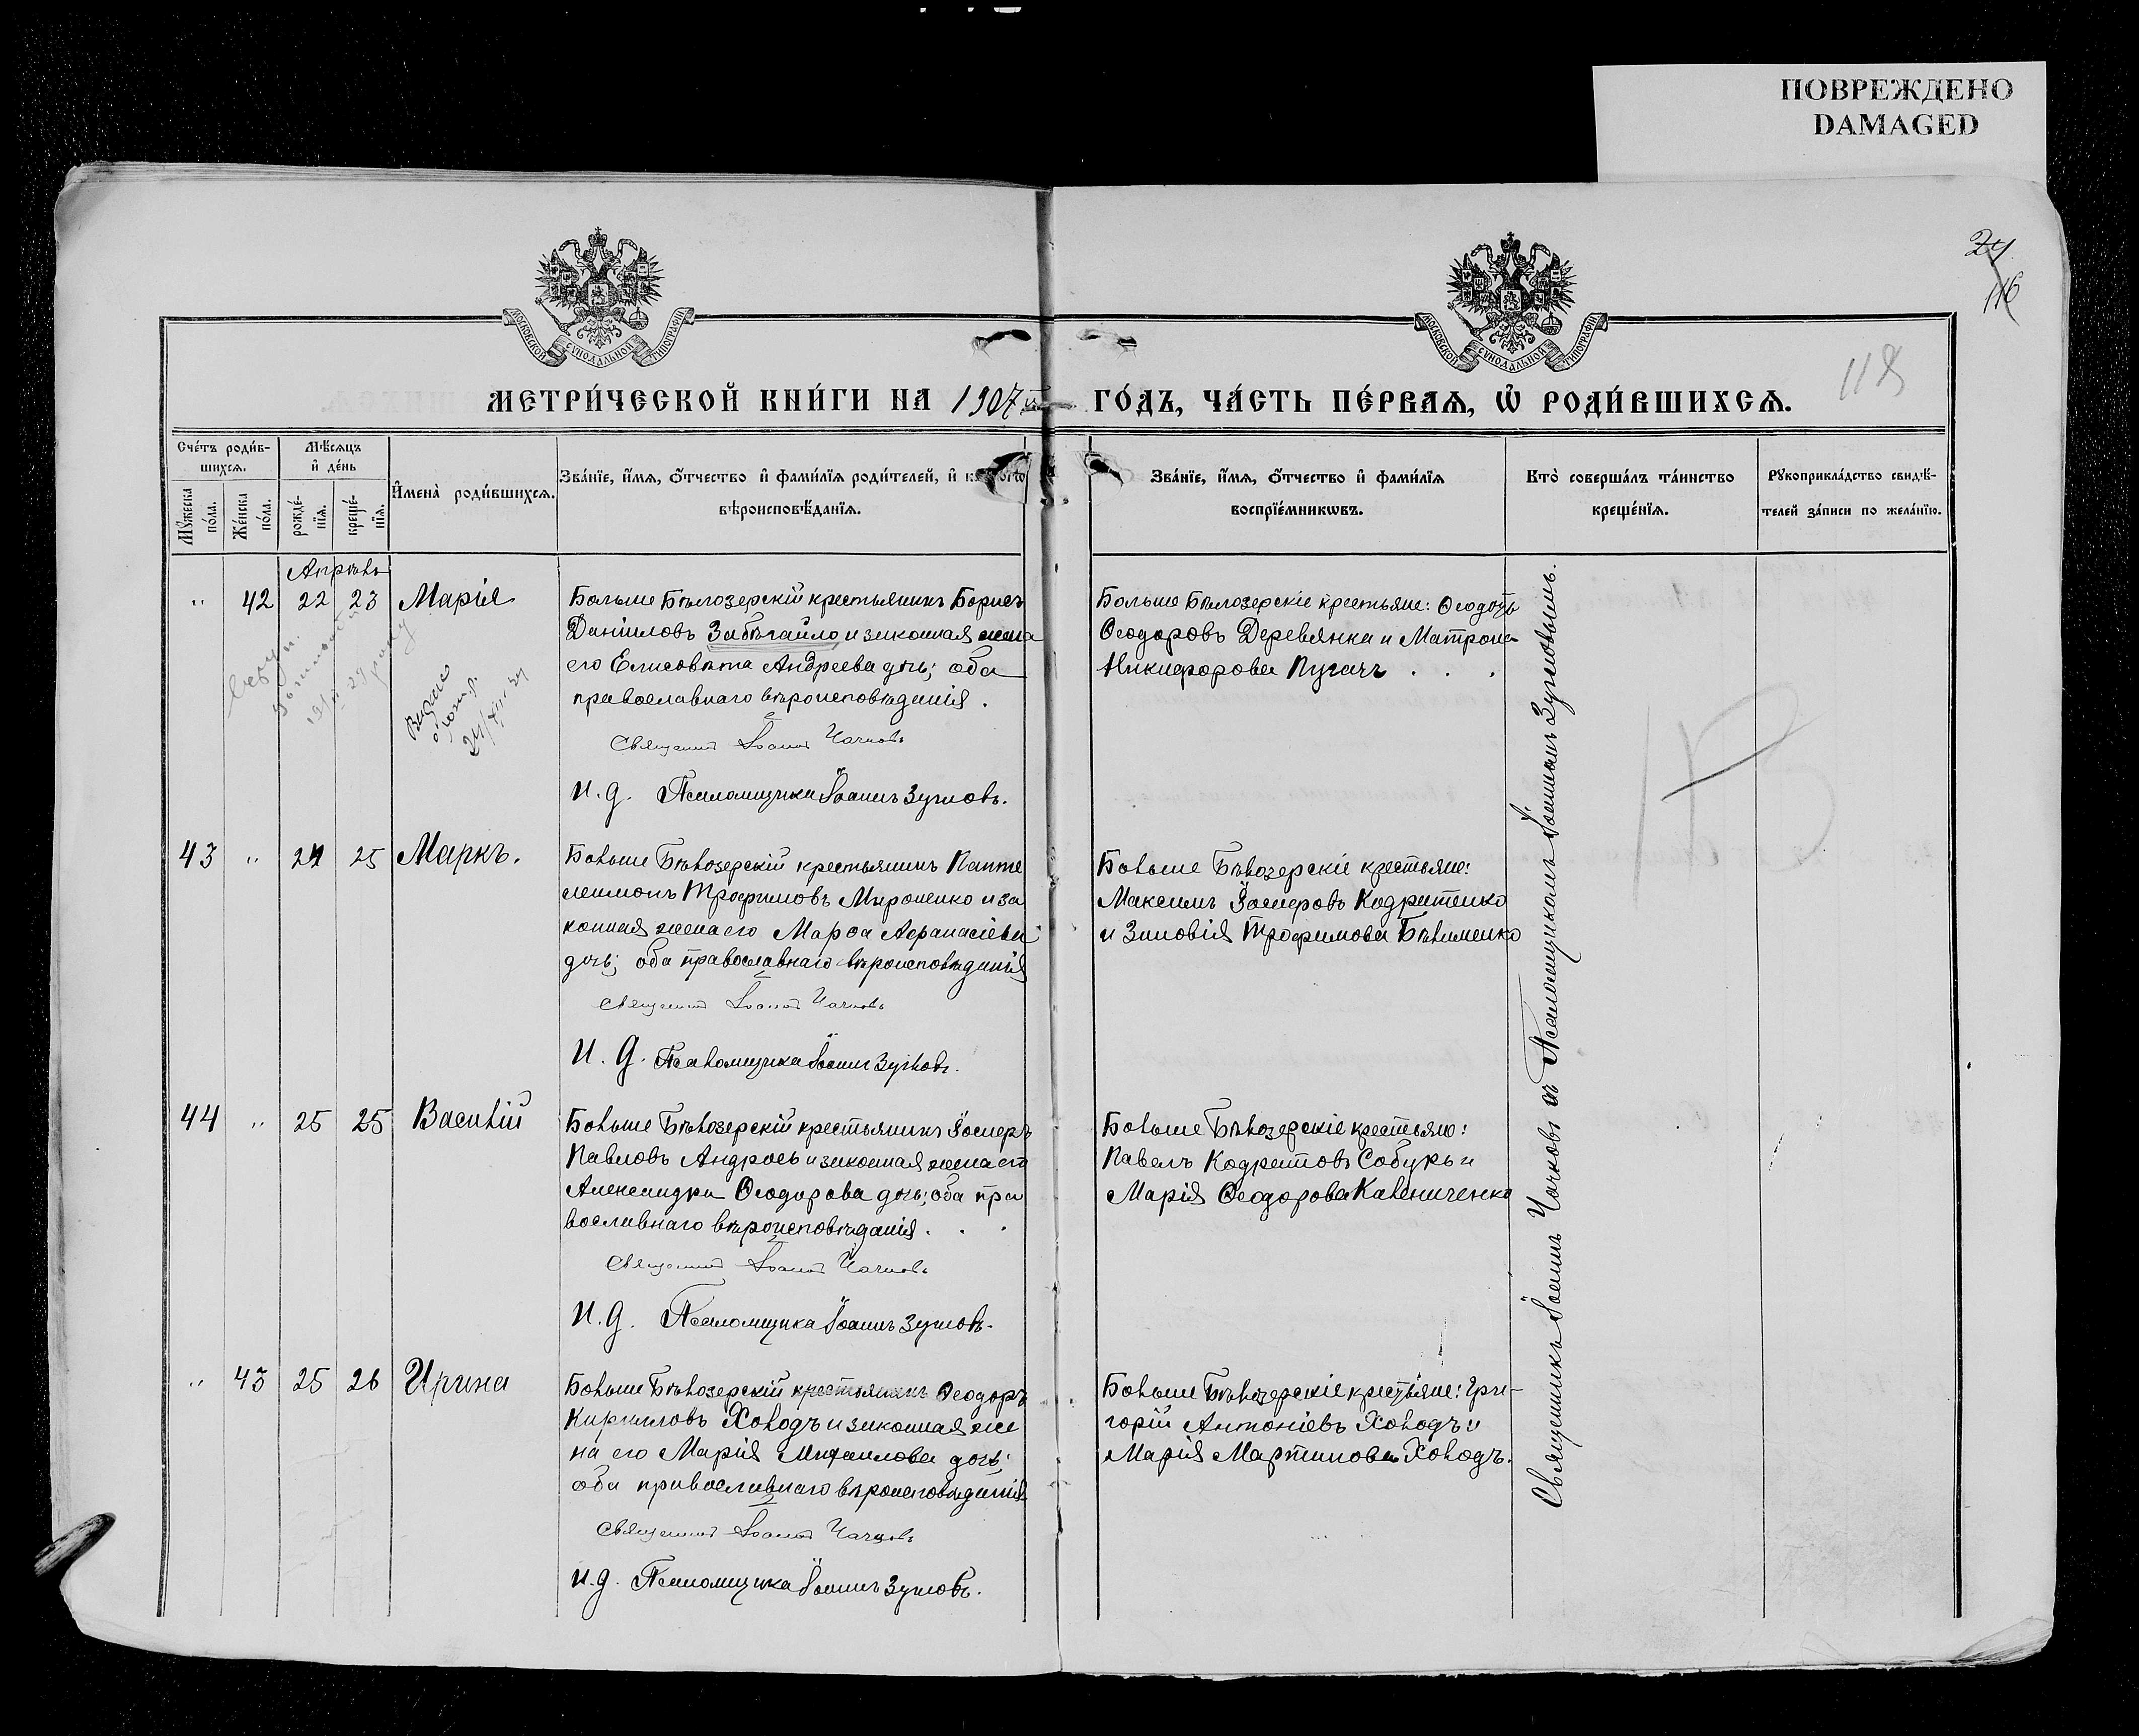 ПОВРЕЖДЕНО
DAMAGED
24
116
118
МОСКОВСКОЙ СѴНОДАЛЬНОЙ ТИПОГРАФІИ
МОСКОВСКОЙ СѴНОДАЛЬНОЙ ТИПОГРАФІИ
МЕТРИ́ЧЕСКОЙ КНИ́ГИ НА 1907 ГО́ДЪ, ЧА́СТЬ ПЕ́РВАѦ, Ѡ҆ РОДИ́ВШИХСѦ.
Сче́тъ роди́в-
шихсѧ.
Мꙋ́жеска по́ла.
Же́нска по́ла.
Мѣ́сѧцъ
и҆ де́нь
рожде́-
нїѧ.
креще́-
нїѧ.
И҆мена̀ роди́вшихсѧ.
Зва́нїе, и҆́мѧ, ѻ҆́тчество и҆ фами́лїѧ роди́телей, и҆
вѣ́роисповѣ́данїѧ.
Зва́нїе, и҆́мѧ, ѻ҆́тчество и҆ фами́лїѧ
воспрїе́мникѡвъ.
Кто̀ соверша́лъ та́инство
креще́нїѧ.
Рꙋкоприкла́дство свидѣ́-
телей за́писи по жела́нїю.
Апрѣль
" 42 22 23 Марія
Больше Бѣлозерскій крестьянинъ Борисъ
Даніиловъ Забѣгайло и законная жена
его Елисовета Андреева дочь; оба
православнаго вѣроисповѣданія.
Священник Іоанн Чачковъ
И. д. Псаломщика Іоаннъ Зуговъ.
Больше Бѣлозерскіе крестьяне: Ѳеодотъ
Ѳеодоровъ Деревянка и Матрона
Никифорова Пугачъ . . .
43 " 24 25 Маркъ.
Больше Бѣлозерскій крестьянинъ Панте
леимонъ Трофимовъ Мироненко и за
конная жена его Марѳа Афанасіева
дочь; оба православнаго вѣроисповѣданія
Священник Іоанн Чачковъ
И. д. Псаломщика Іоаннъ Зуговъ.
Больше Бѣлозерскіе крестьяне:
Максимъ Іосифовъ Кодратенко
и Зиновія Трофимова Бѣлименко
44 " 25 25 Василій
Больше Бѣлозерскій крестьянинъ Іосифъ
Павловъ Андрось и законная жена его
Александра Ѳеодорова дочь; оба пра
вославнаго вѣроисповѣданія . . .
Священник Іоанн Чачковъ
И. д. Псаломщика Іоаннъ Зуговъ.
Больше Бѣлозерскіе крестьяне:
Павелъ Кодратовъ Собурь и
Марія Ѳеодорова Калениченко
" 43 25 26 Ирина
Больше Бѣлозерскій крестьянинъ Ѳеодоръ
Кириловъ Холодъ и законная же
на его Марія Михаилова дочь;
оба православнаго вѣроисповѣданія
Священник Іоанн Чачковъ
И. д. Псаломщика Іоаннъ Зуговъ.
Больше Бѣлозерскіе крестьяне: Гри-
горій Антоніевъ Холодъ и
Марія Мартинова Холодъ.
Священникъ Іоаннъ Чачковъ съ Псаломщикомъ Іоанномъ Зуговымъ.